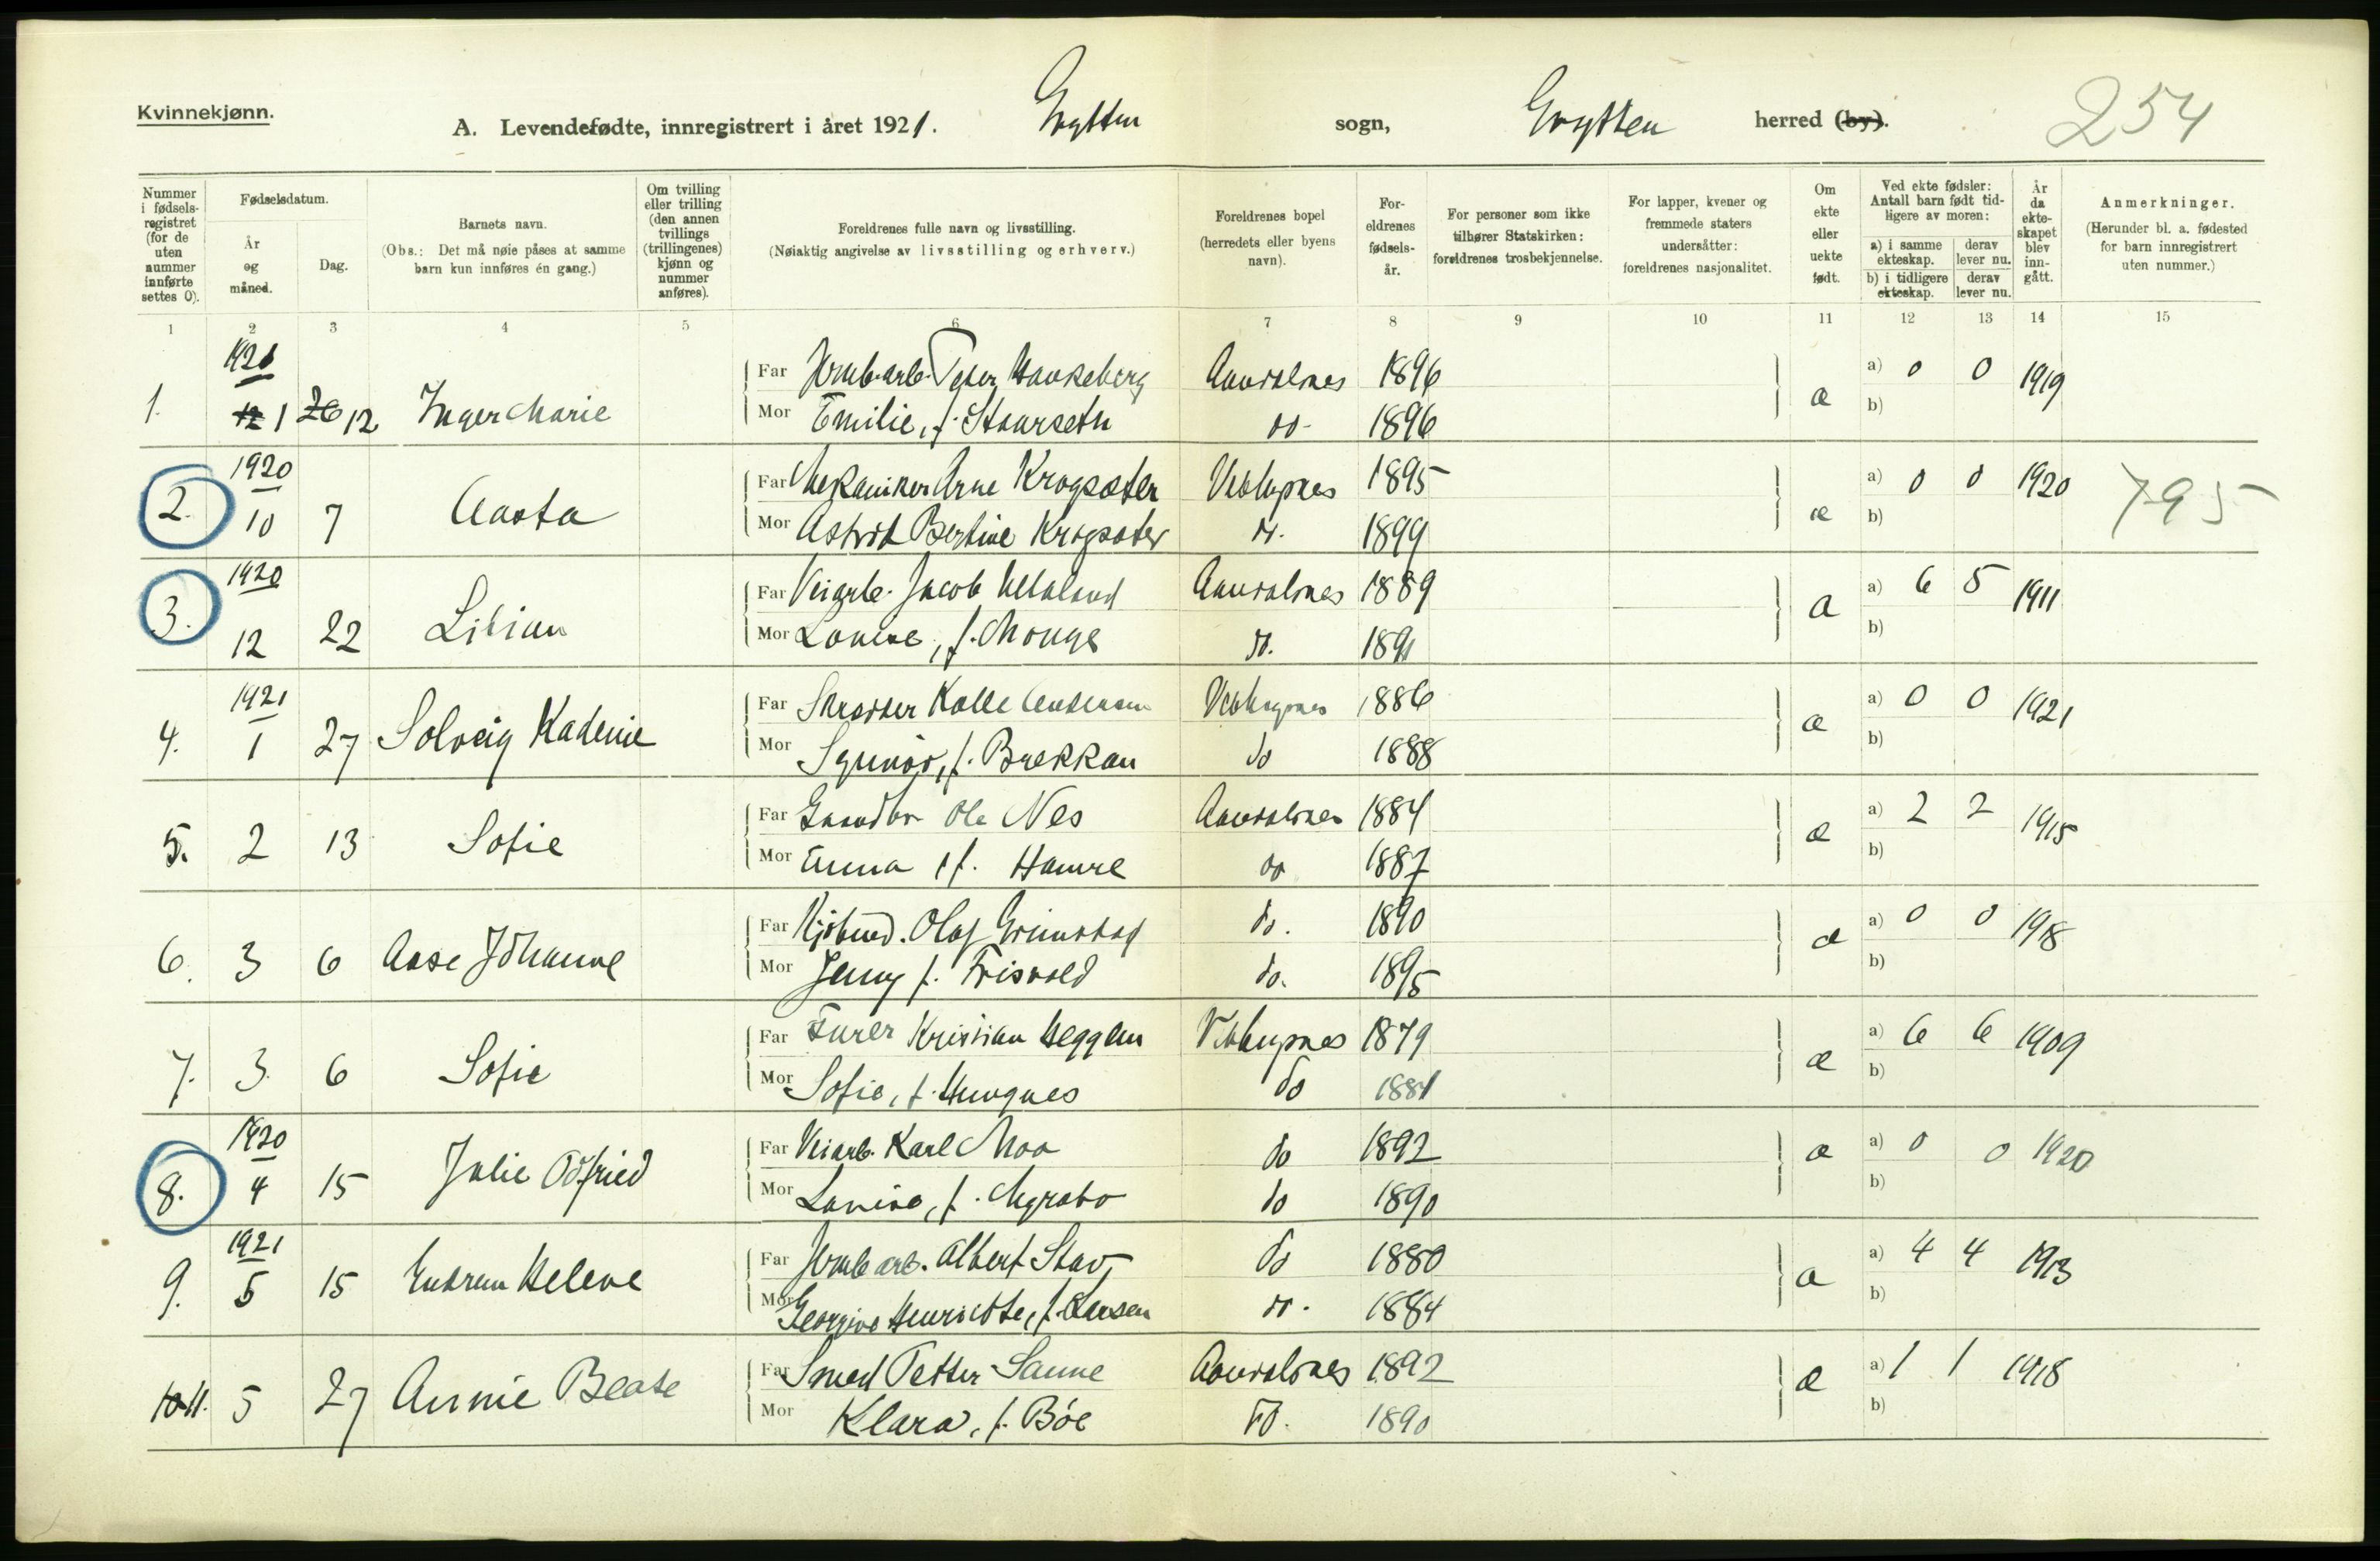 Kvinnekjønn.
A. Levendefødte, innregistrert i året 1921. Grytten sogn, Grytten herred (by). 254
Nummer i fødsels-registret (for de uten nummer innførte settes 0).
Fødselsdatum.
År og måned.
Dag.
Barnets navn.
(Obs.: Det må nøie påses at samme barn kun innføres én gang.)
Om tvilling eller trilling (den annen tvillings (trillingenes) kjønn og nummer anføres).
Foreldrenes fulle navn og livsstilling.
(Nøiaktig angivelse av livsstilling og erhverv.)
Foreldrenes bopel (herredets eller byens navn).
For-eldrenes fødsels-år.
For personer som ikke tilhører Statskirken: foreldrenes trosbekjennelse.
For lapper, kvener og fremmede staters undersåtter: foreldrenes nasjonalitet.
Om ekte eller uekte født.
Ved ekte fødsler: Antall barn født tid-ligere av moren:
a) i samme ekteskap. derav lever nu.
b) i tidligere ekteskap. derav lever nu.
År da ekte-skapet blev inn-gått.
Anmerkninger.
(Herunder bl. a. fødested for barn innregistrert uten nummer.)
1 2 3 4 5 6 7 8 9 10 11 12 13 14 15
1921
1. 12 1 26 12 Inger Marie Far Jernb.arb. Peter Haukeberg Aandalsnes 1896 æ a) 0 0 1919
Mor Emilie, f. Staurseth do 1896 b)
1920
2. 10 7 Aasta Far Mekaniker Arne Krogsæter Veblugsnes 1895 æ a) 0 0 1920 795
Mor Astrid Bertine Krogsæter do. 1899 b)
1920
3. 12 22 Lilian Far Veiarb. Jacob Aandalsnes 1889 æ a) 6 5 1911
Mor Lovise, f. Monge do. 1891 b)
1921
4. 1 27 Solveig Kadenie Far Skrædder Kolle Andersen Veblugsnes 1886 æ a) 0 0 1921
Mor f. Brekkan do 1888 b)
5. 2 13 Sofie Far Ole Nes Aandalsnes 1884 æ a) 2 2 1915
Mor Emma f. Hamre do 1887 b)
6. 3 6 Aase Johanne Far Kjøbmd. Olaf Grimstad do. 1890 æ a) 0 0 1918
Mor Jenny f. Frisvold do. 1895 b)
7. 3. 6 Sofie Far Furer Kristian Heggem Veblugsnes 1879 æ a) 6 6 1909
Mor Sofie, f. do 1881 b)
1920
8. 4 15 Julie Odfried Far Veiarb. Karl Moa do 1892 æ a) 0 0 1920
Mor Lovise, f. do 1890 b)
1921
9. 5 15 Gudrun Helene Far Jernb.arb. Albert Stav do 1880 æ a) 4 4 1913
Mor Georgine Henriette, f. Larsen do. 1884 b)
10 11. 5 27 Annie Beate Far Smed Petter Sanne Aandalsnes 1892 æ a) 1 1 1918
Mor Klara, f. Bøe do. 1890 b)